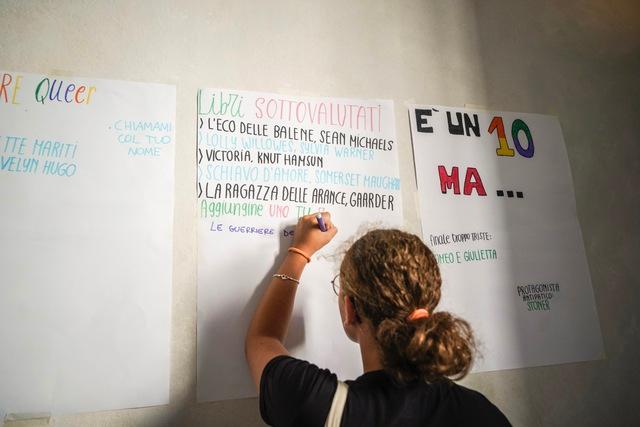 RE Queer
. CHIAMAMI
COL TUO
NOME
TTE MARITI
VELYN HUGO
LIBRI SOTTOVALUTATI
> L'ECO DELLE BALENE, SEAN MICHAELS
> LOLLY WILLOWES, SYLVIA WARNER
> VICTORIA, KNUT HAMSUN
> SCHIAVO D'AMORE, SOMERSET MAUGHAM
> LA RAGAZZA DELLE ARANCE, GAARDER
Aggiungine UNO TU
LE GUERRIERE
E UN 10
MA...
finale troppo triste:
OMEO E GIULIETTA
PROTAGONISTA
ANTIPATICO:
STONER